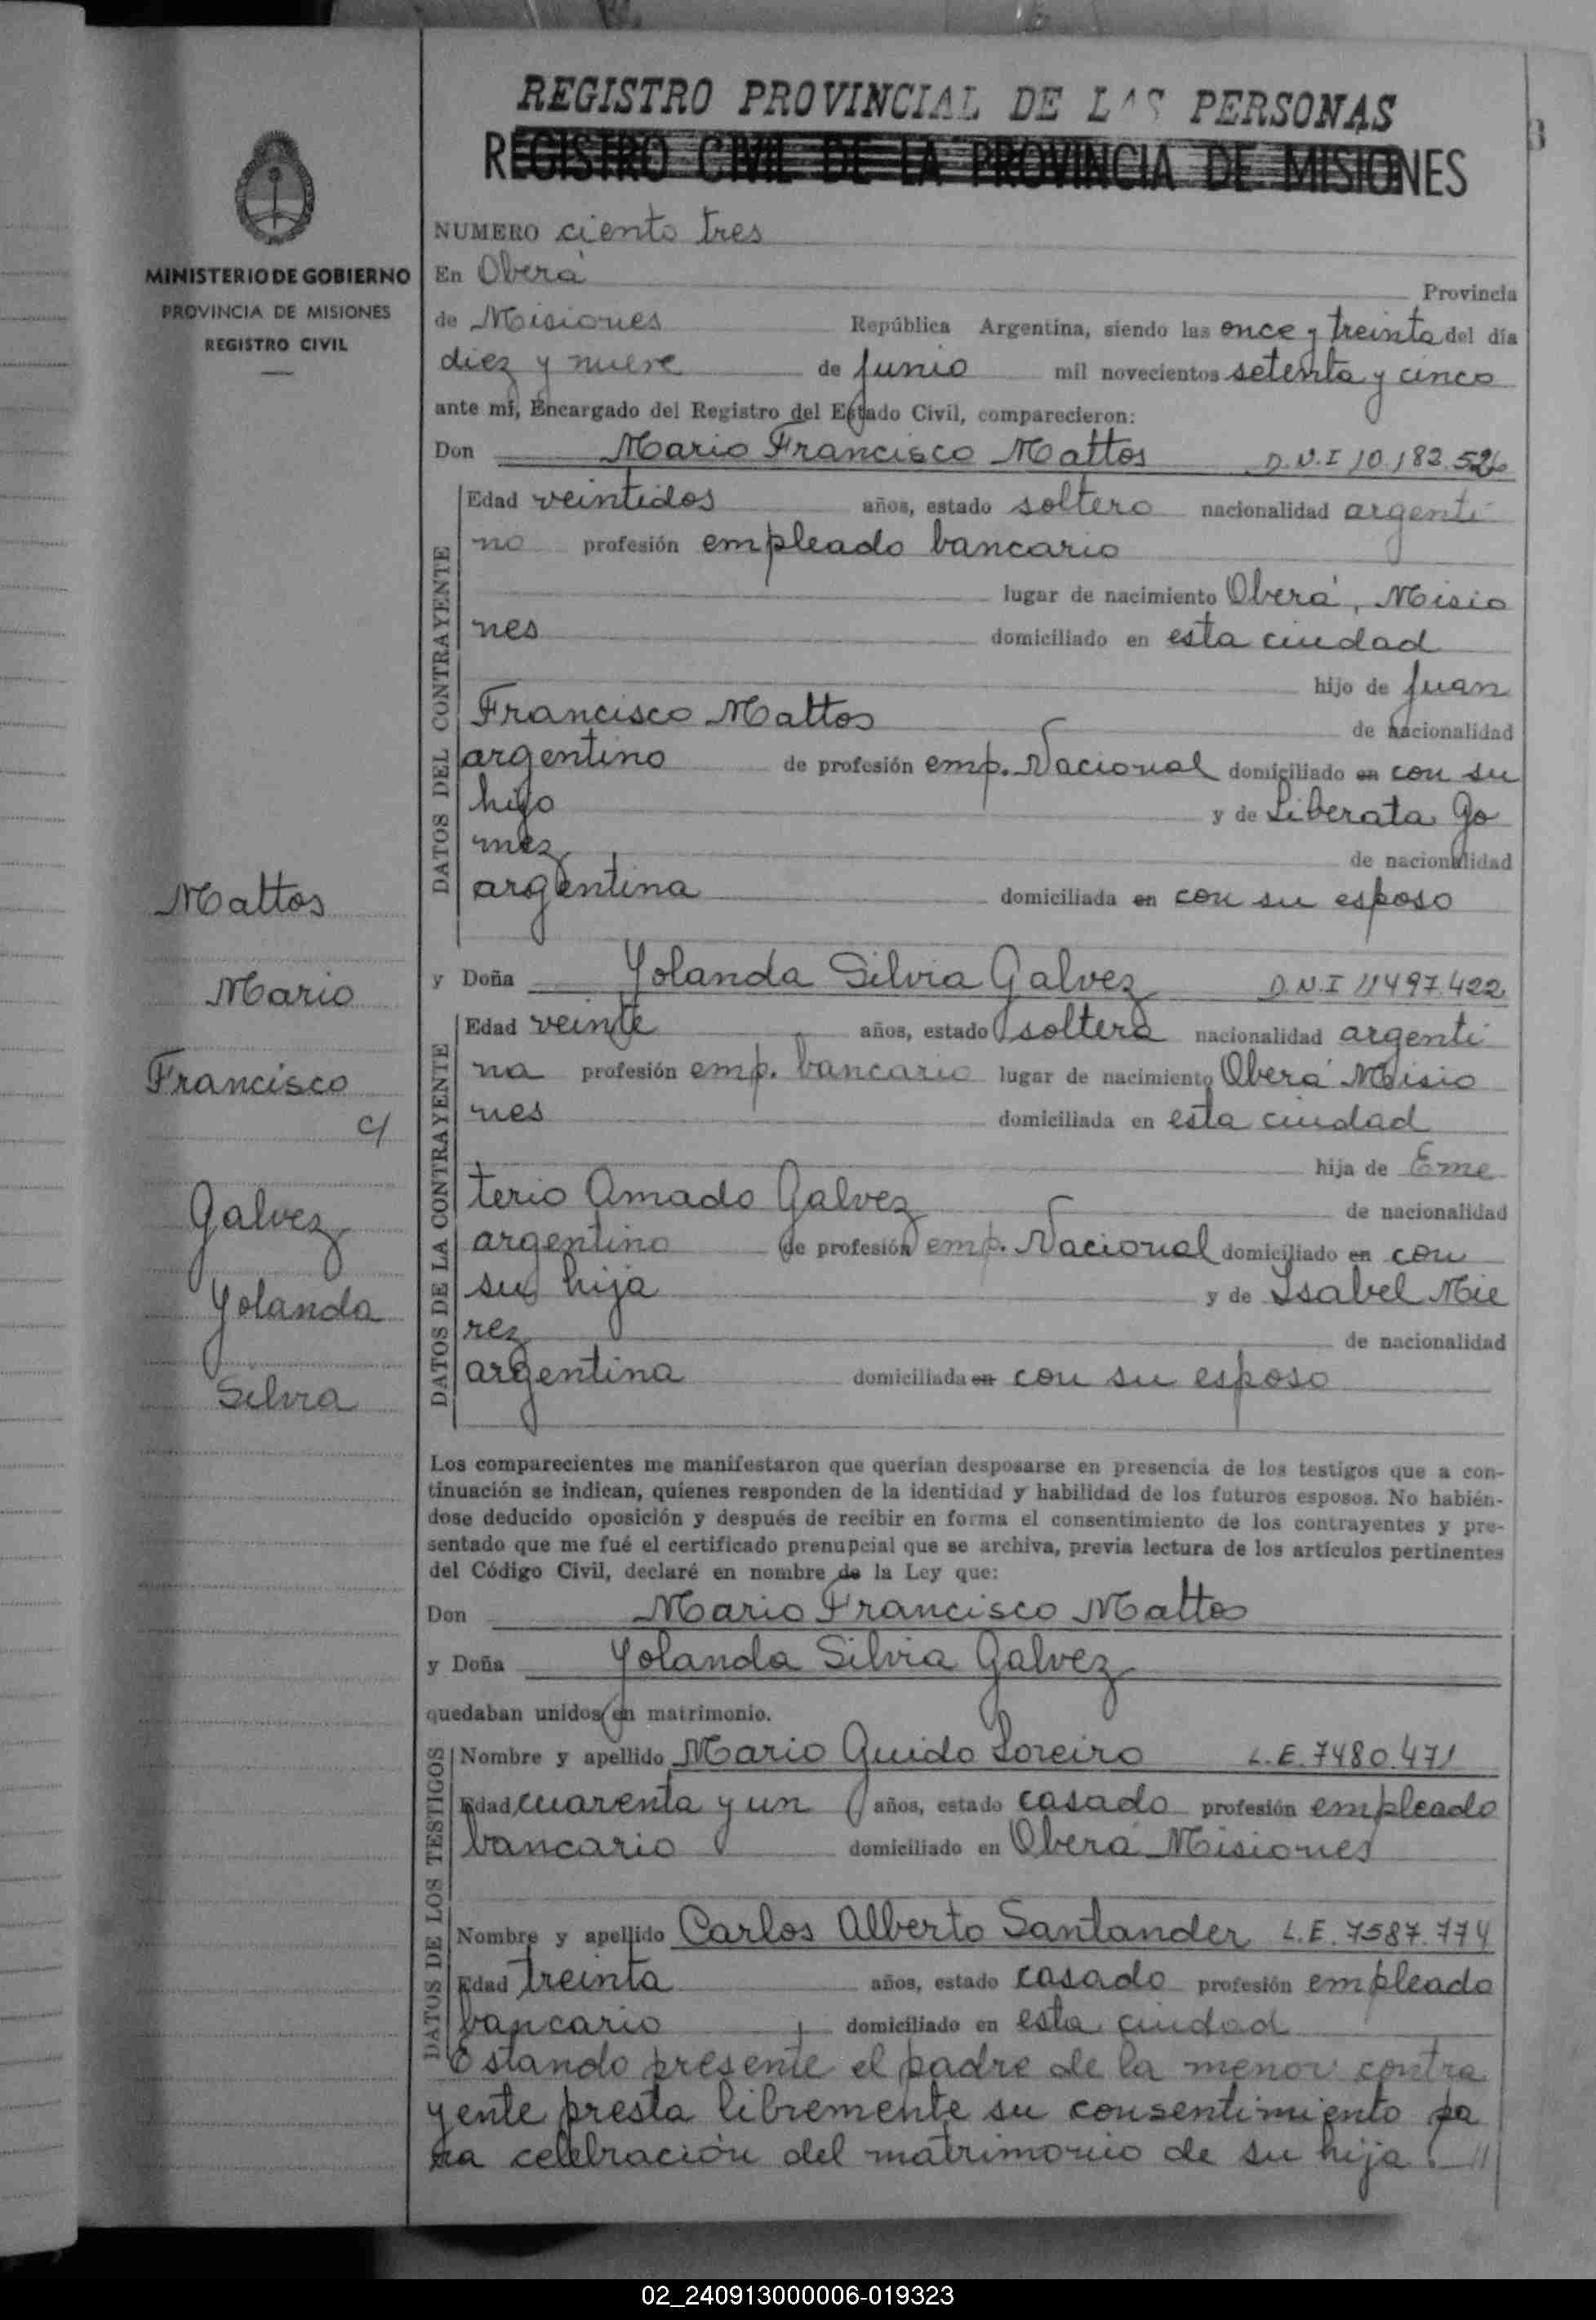 REGISTRO PROVINCIAL DE LAS PERSONAS
REGISTRO CIVIL DE LA PROVINCIA DE MISIONES
MINISTERIO DE GOBIERNO
PROVINCIA DE MISIONES
REGISTRO CIVIL
Mattos
Mario
Francisco
c/
Galvez
Yolanda
Silvia
NUMERO ciento tres
En Oberá Provincia
de Misiones República Argentina, siendo las once y treinta del día
diez y nueve de Junio mil novecientos setenta y cinco
ante mí, Encargado del Registro del Estado Civil, comparecieron:
Don Mario Francisco Mattos D.N.I 10.182.526
DATOS DEL CONTRAYENTE
Edad veintidos años, estado soltero nacionalidad argenti
no profesión empleado bancario
lugar de nacimiento Oberá, Misio
nes domiciliado en esta ciudad
hijo de Juan
Francisco Mattos de nacionalidad
argentino de profesión emp. Nacional domiciliado en con su
hijo y de Liberata Go
mez de nacionalidad
argentina domiciliada en con su esposo
y Doña Yolanda Silvia Galvez D.N.I 11497.422
DATOS DE LA CONTRAYENTE
Edad veinte años, estado soltera nacionalidad argenti
na profesión emp. bancario lugar de nacimiento Oberá Misio
nes domiciliada en esta ciudad
hija de Eme
terio Amado Galvez de nacionalidad
argentino de profesión emp. Nacional domiciliado en con
su hija y de Isabel Mie
rez de nacionalidad
argentina domiciliada en con su esposo
Los comparecientes me manifestaron que querían desposarse en presencia de los testigos que a con-
tinuación se indican, quienes responden de la identidad y habilidad de los futuros esposos. No habién-
dose deducido oposición y después de recibir en forma el consentimiento de los contrayentes y pre-
sentado que me fué el certificado prenupcial que se archiva, previa lectura de los artículos pertinentes
del Código Civil, declaré en nombre de la Ley que:
Don Mario Francisco Mattos
y Doña Yolanda Silvia Galvez
quedaban unidos en matrimonio.
DATOS DE LOS TESTIGOS
Nombre y apellido Mario Guido Loreiro L.E. 7480.471
Edad cuarenta y un años, estado casado profesión empleado
bancario domiciliado en Oberá Misiones
Nombre y apellido Carlos Alberto Santander L.E. 7587.774
Edad treinta años, estado casado profesión empleado
bancario domiciliado en esta ciudad
Estando presente el padre de la menor contra
yente presta libremente su consentimiento pa
ra celebración del matrimonio de su hija. //
02_240913000006-019323